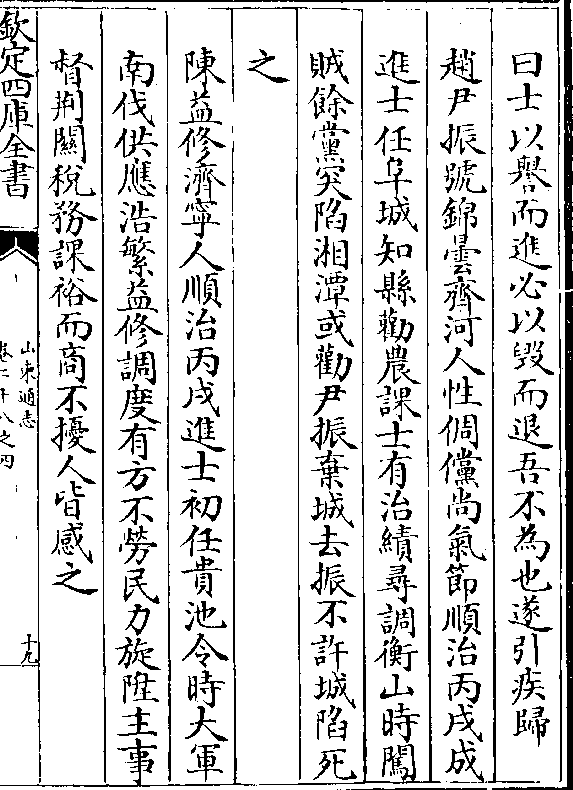 曰士以譽而進必以毁而退吾不為也遂引疾歸
趙尹振號錦曇齊河人性倜儻尚氣節順治丙戌成
進士任阜城知縣勸農課士有治績尋調衡山時闖
賊餘黨突陷湘潭或勸尹振棄城去振不許城陷死
之
陳益修濟寧人順治丙戌進士初任貴池令時大軍
南伐供應浩繁益修調度有方不勞民力旋陞主事
督荆關稅務課裕而商不擾人皆感之
欽定四庫全書
山東通志
卷二十八之四
十九